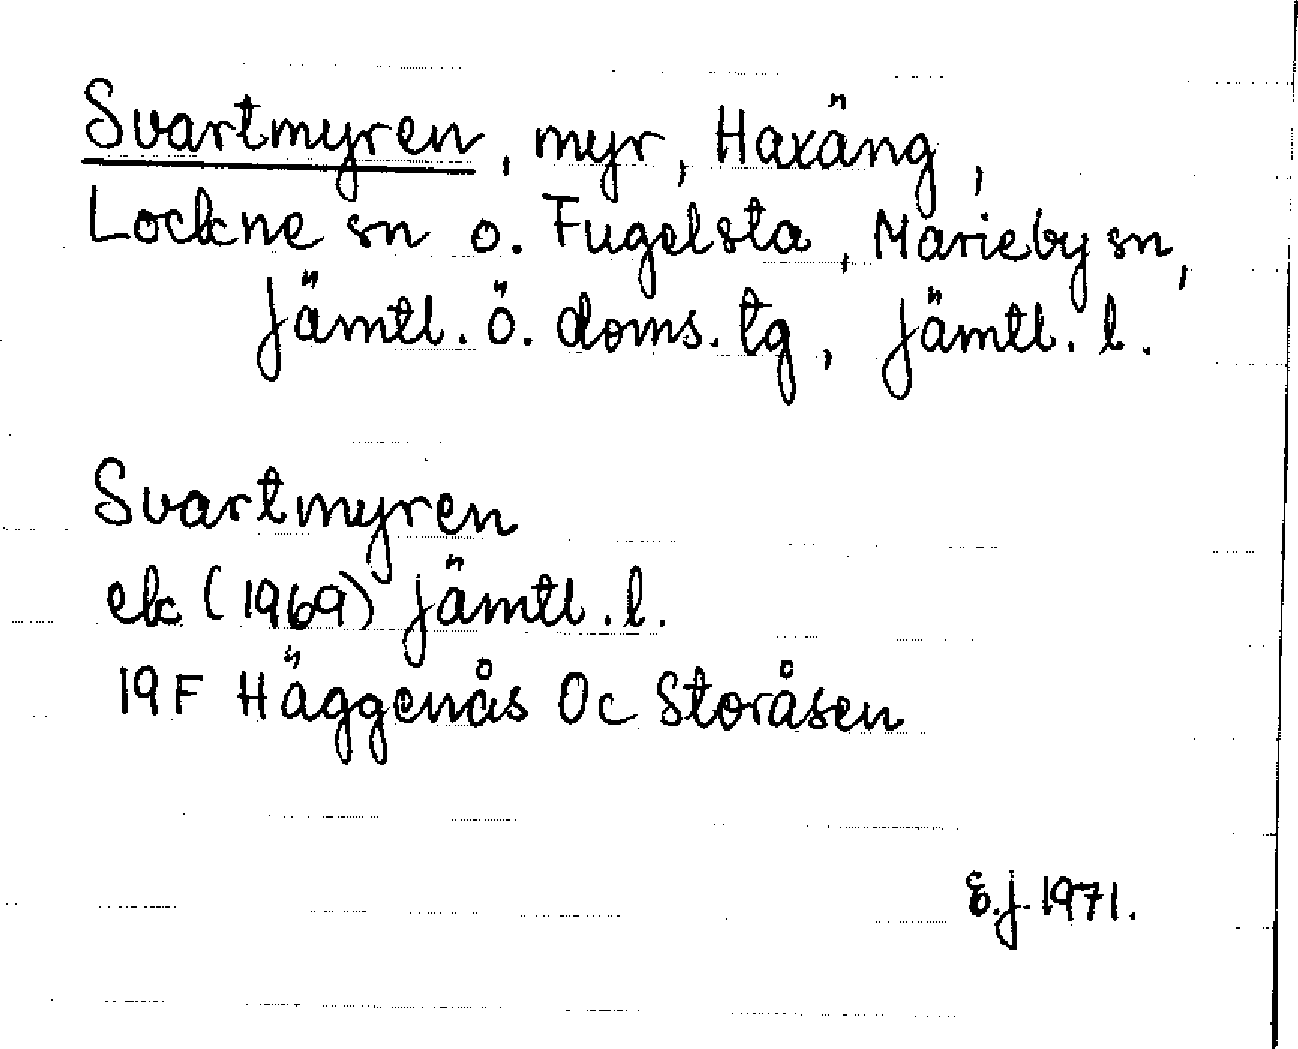 Svartmyren, myr, Haxäng,
Lockne sn o. Fugelsta, Marieby sn,
Jämtl. Ö. doms. tg, Jämtl. l.
Svartmyren
ek (1969) Jämtl. l.
19F Häggenås 0c Storåsen
E.J. 1971.